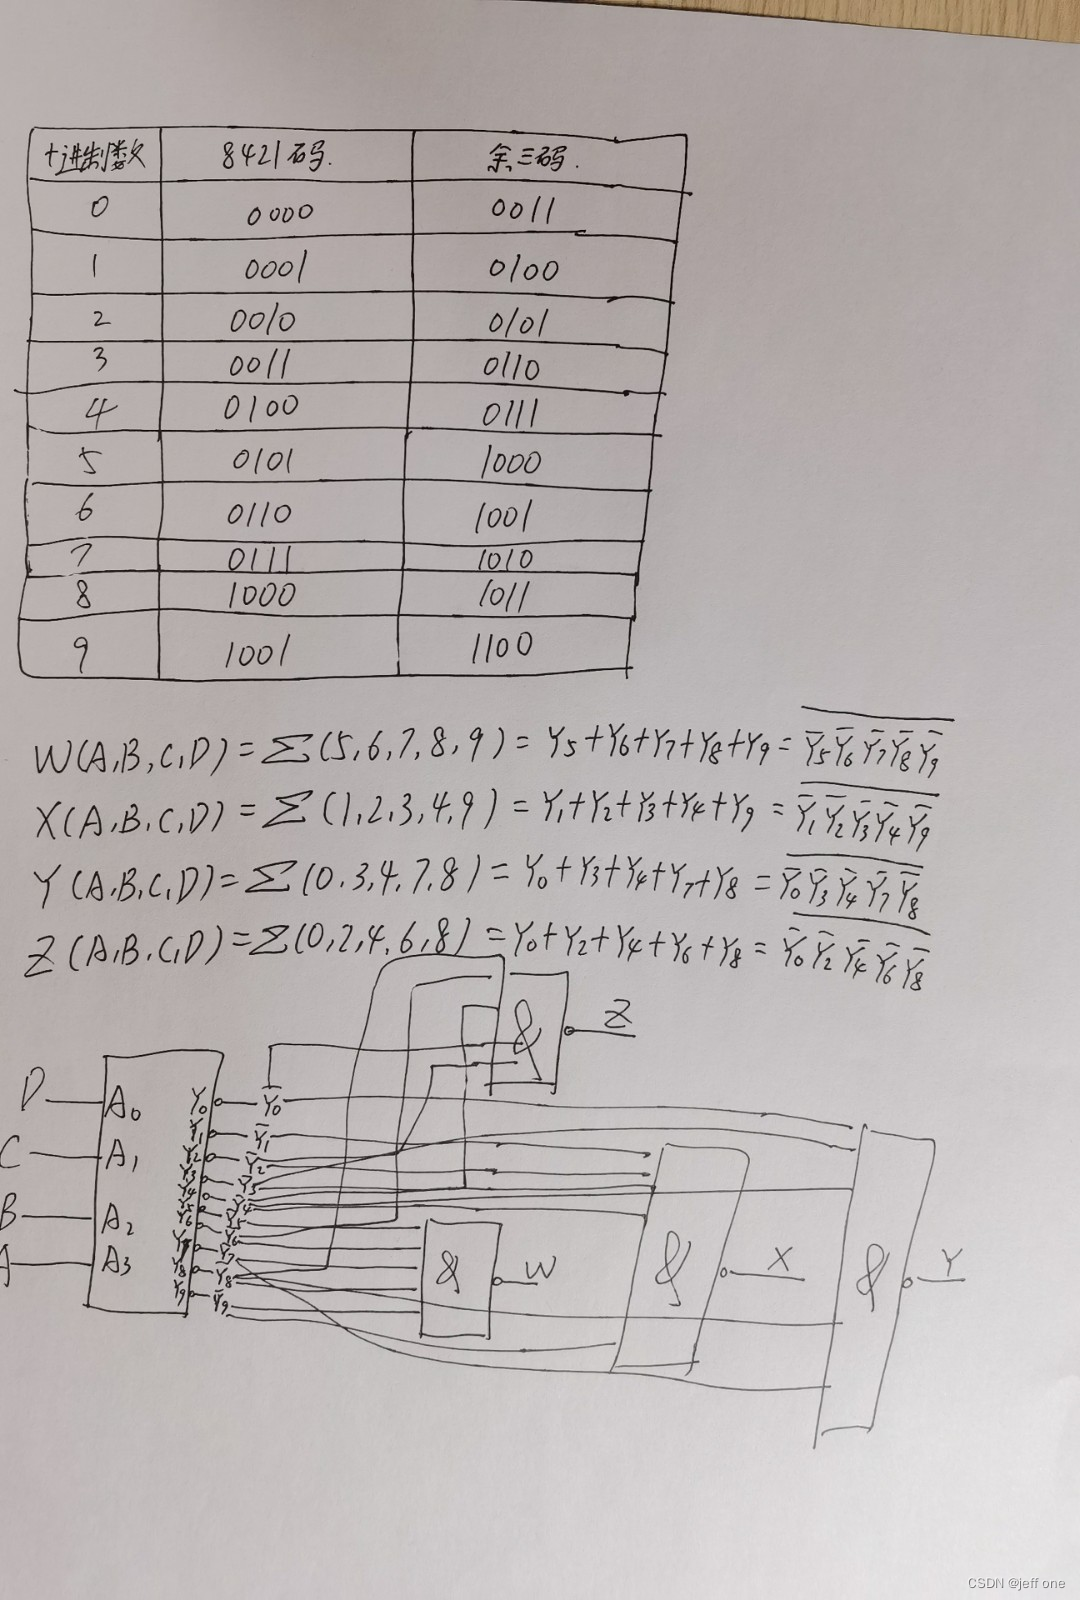 十进制数 8421码. 余三码.
0 0000 0011
1 0001 0100
2 0010 0101
3 0011 0110
4 0100 0111
5 0101 1000
6 0110 1001
7 0111 1010
8 1000 1011
9 1001 1100
W(A,B,C,D)=∑(5,6,7,8,9)=Y₅+Y₆+Y₇+Y₈+Y₉=\overline{Y̅₅Y̅₆Y̅₇Y̅₈Y̅₉}
X(A,B,C,D)=∑(1,2,3,4,9)=Y₁+Y₂+Y₃+Y₄+Y₉=\overline{Y̅₁Y̅₂Y̅₃Y̅₄Y̅₉}
Y(A,B,C,D)=∑(0.3,4,7,8)=Y₀+Y₃+Y₄+Y₇+Y₈=\overline{Y̅₀Y̅₃Y̅₄Y̅₇Y̅₈}
Z(A,B,C,D)=∑(0,2,4,6,8)=Y₀+Y₂+Y₄+Y₆+Y₈=\overline{Y̅₀Y̅₂Y̅₄Y̅₆Y̅₈}
& Z
D A₀ Y₀ Y̅₀
Y₁ Y̅₁
C A₁ Y₂ Y̅₂
Y₃ Y̅₃
Y₄ Y̅₄
B A₂ Y₅ Y̅₅
Y₆ Y̅₆
Y₇ Y̅₇
A A₃ Y₈ Y̅₈
Y₉ Y̅₉
& W
& X
& Y
CSDN @jeff one